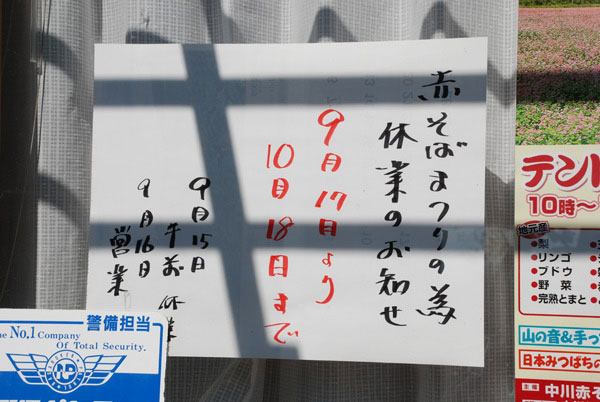 赤そばまつりの為
休業のお知せ
9月17日より
10月18日まで
9月15日
午前休業
9月16日
営業
警備担当
No.1 Company
Of Total Security.
テント
10時～
地元産
●梨
●リンゴ
●ブドウ
●野菜
●完熟とまと
山の音&手っ
日本みつばちの
主催 中川赤そ